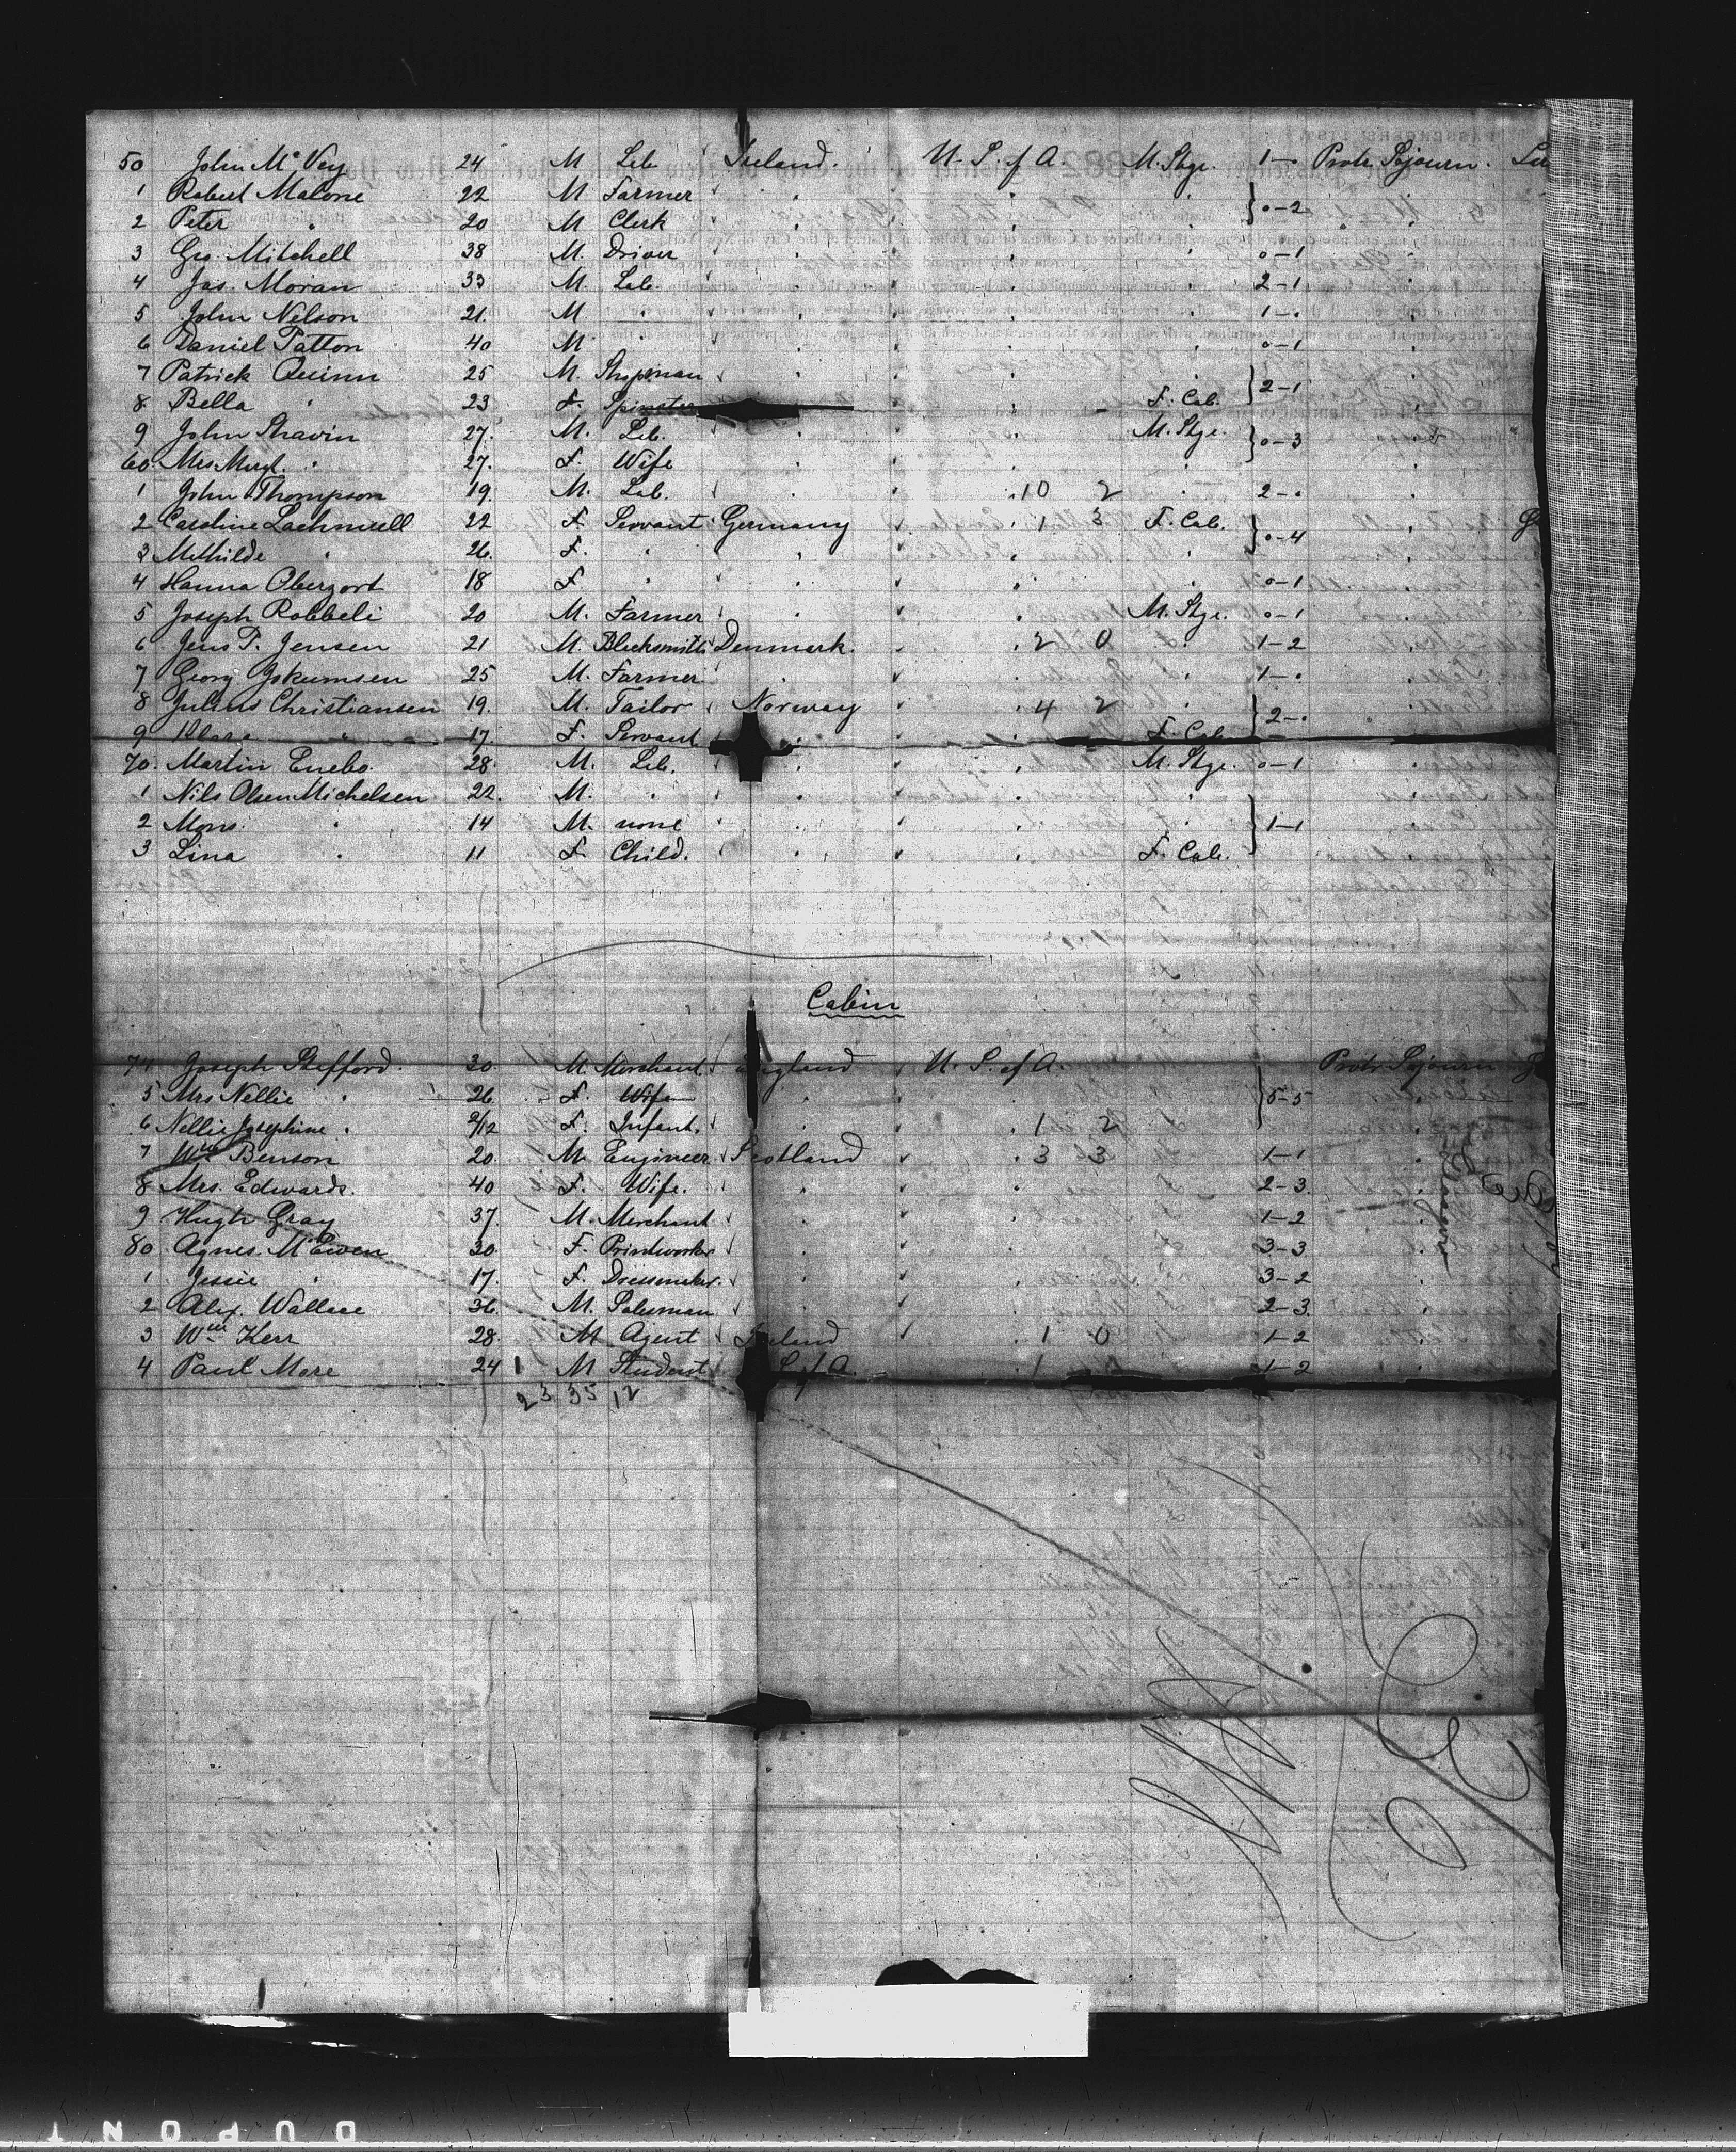 50 John McVey 24 M Lab. Ireland. U.S. of A. M. Stge. 1- Protr. Sojourn.
1 Robert Malone 22 M Farmer " " " } 0-2
2 Peter " 20 M Clerk " " "
3 Geo. Mitchell 38 M. Driver " " " 0-1
4 Jas. Moran 33 M. Lab. " " " 2-1
5 John Nelson 21 M " " " " 1-
6 Daniel Patton 40 M " " " " 0-1
7 Patrick Quinn 25 M. Shopman " " " } 2-1
8 Bella " 23 F. Spinster " " F. Cab.
9 John Shavin 27. M. Lab. " " M. Stge. } 0-3
60 Mrs Margt. " 27. F. Wife " " "
1 John Thompson 19. M. Lab. " " 10 2 " 2-
2 Caroline 22 F. Servant Germany " 1 3 F. Cab. } 0-4
3 Mathilde " 26. F. " " " "
4 Hanna Obergort 18 F " " " " 0-1
5 Joseph Robbeli 20 M. Farmer " " M. Stge. 0-1
6 Jens P. Jensen 21 M. Blacksmith Denmark. " 2 0 " 1-2
7 Georg 25 M. Farmer " " " 1-
8 Julius Christiansen 19. M. Tailor Norway " 4 2 " } 2-
9 Klara " 17. F. Servant " " F. Cab.
70. Martin Enebo. 28. M. Lab. " " M. Stge. 0-1
1 Nils Olsen Michelsen 22. M. " " " " } 1-1
2 Mons. " 14 M. none " " "
3 Lina " 11 F. Child. " " F. Cab.
Cabin
74 Joseph Stefford. 30. M. Merchant England U.S. of A. Protr Sojourn
5 Mrs Nellie " 26 F. Wife " " } 5-5
6 Nellie Josephine " 2/12 F. Infant. " 1 2
7 Wm Benson 20. M. Engineer Scotland 3 3 1-1
8 Mrs. Edwards. 40 F. Wife. " " 2-3.
9 Hugh Gray 37. M. Merchant " " 1-2
80 Agnes McEwen 30. F. Printworker " " 3-3
1 Jessie " 17. F. Dressmaker. " " 3-2
2 Alex. Wallace 36. M. Salesman " " 2-3.
3 Wm Kerr 28. M Agent Ireland " 1 0 1-2
4 Paul More 24 1 M Student S. of A. 1 1-2
23 35 12
Glasgow
DUPONT